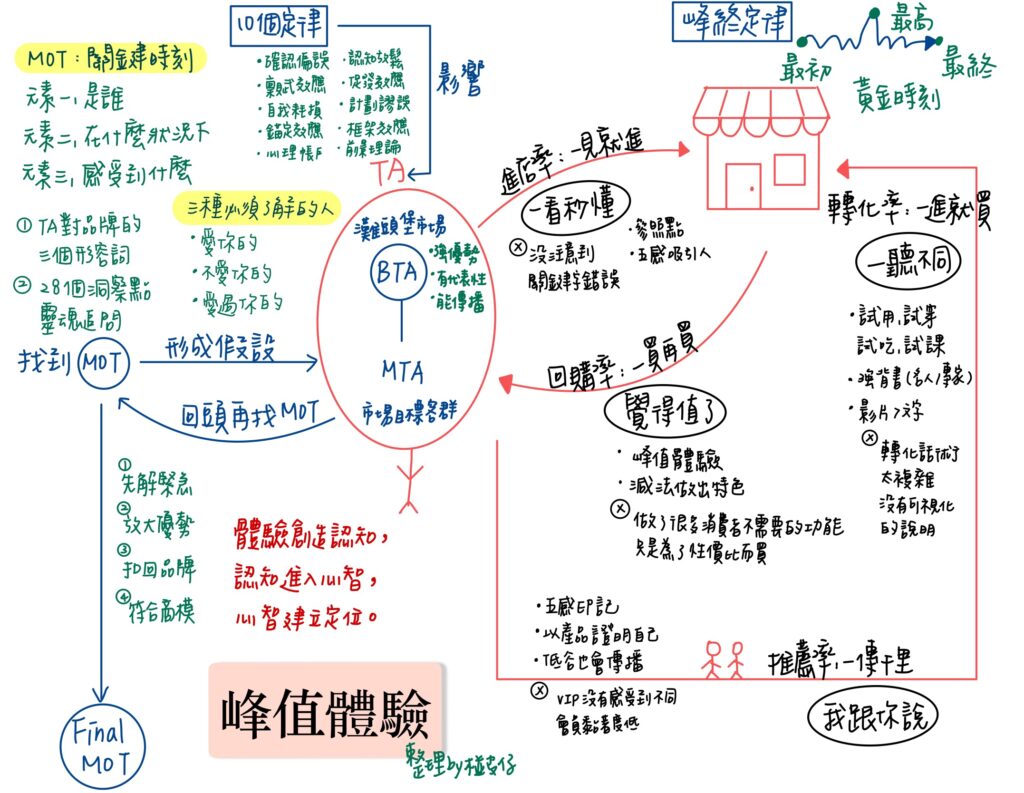 MOT：關鍵時刻
元素一,是誰
元素二,在什麼狀況下
元素三,感受到什麼
10個定律
・確認偏誤
・稟賦效應
・自我耗損
・錨定效應
・心理帳戶
・認知放鬆
・促發效應
・計劃謬誤
・框架效應
・前景理論
影響
峰終定律
最初
最高
最終
黃金時刻
① TA對品牌的
三個形容詞
② 28個洞察點
靈魂追問
三種必須了解的人
・愛你的
・不愛你的
・愛過你的
找到 MOT
形成假設
回頭再找MOT
TA
灘頭堡市場
BTA
・強優勢
・有代表性
・能傳播
MTA
市場目標客群
進店率：一見就進
一看秒懂
・參照點
・五感吸引人
ⓧ 沒注意到
關鍵字錯誤
轉化率：一進就買
一聽不同
・試用,試穿
試吃,試課
・強背書(名人/專家)
・影片>文字
ⓧ 轉化話術
太複雜
沒有可視化
的說明
回購率：一買再買
覺得值了
・峰值體驗
・減法做出特色
ⓧ 做了很多消費者不需要的功能
只是為了性價比而買
① 先解緊急
② 放大優勢
③ 扣回品牌
④ 符合商模
Final
MOT
體驗創造認知，
認知進入心智，
心智建立定位。
・五感印記
・以產品證明自己
・低谷也會傳播
ⓧ VIP沒有感受到不同
會員黏著度低
推薦率,一傳千里
我跟你說
峰值體驗
整理by